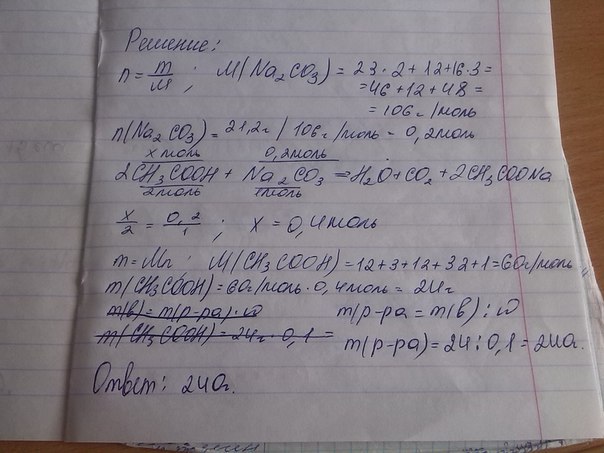 Решение:
n = m/M ; M(Na2CO3) = 23·2+12+16·3=
=46+12+48=
= 106 г/моль
n(Na2CO3) = 21,2г / 106 г/моль = 0,2моль
x моль 0,2моль
2CH3COOH + Na2CO3 = H2O + CO2 + 2CH3COONa
2моль 1моль
x/2 = 0,2/1 ; x = 0,4моль
m = Mn; M(CH3COOH) = 12+3+12+32+1=60г/моль
m(CH3COOH) = 60г/моль · 0,4моль = 24г
m(в) = m(р-ра) · w m(р-ра = m(в) : w
m(CH3COOH) = 24г · 0,1 =
m(р-ра) = 24 : 0,1 = 240г.
Ответ: 240г.